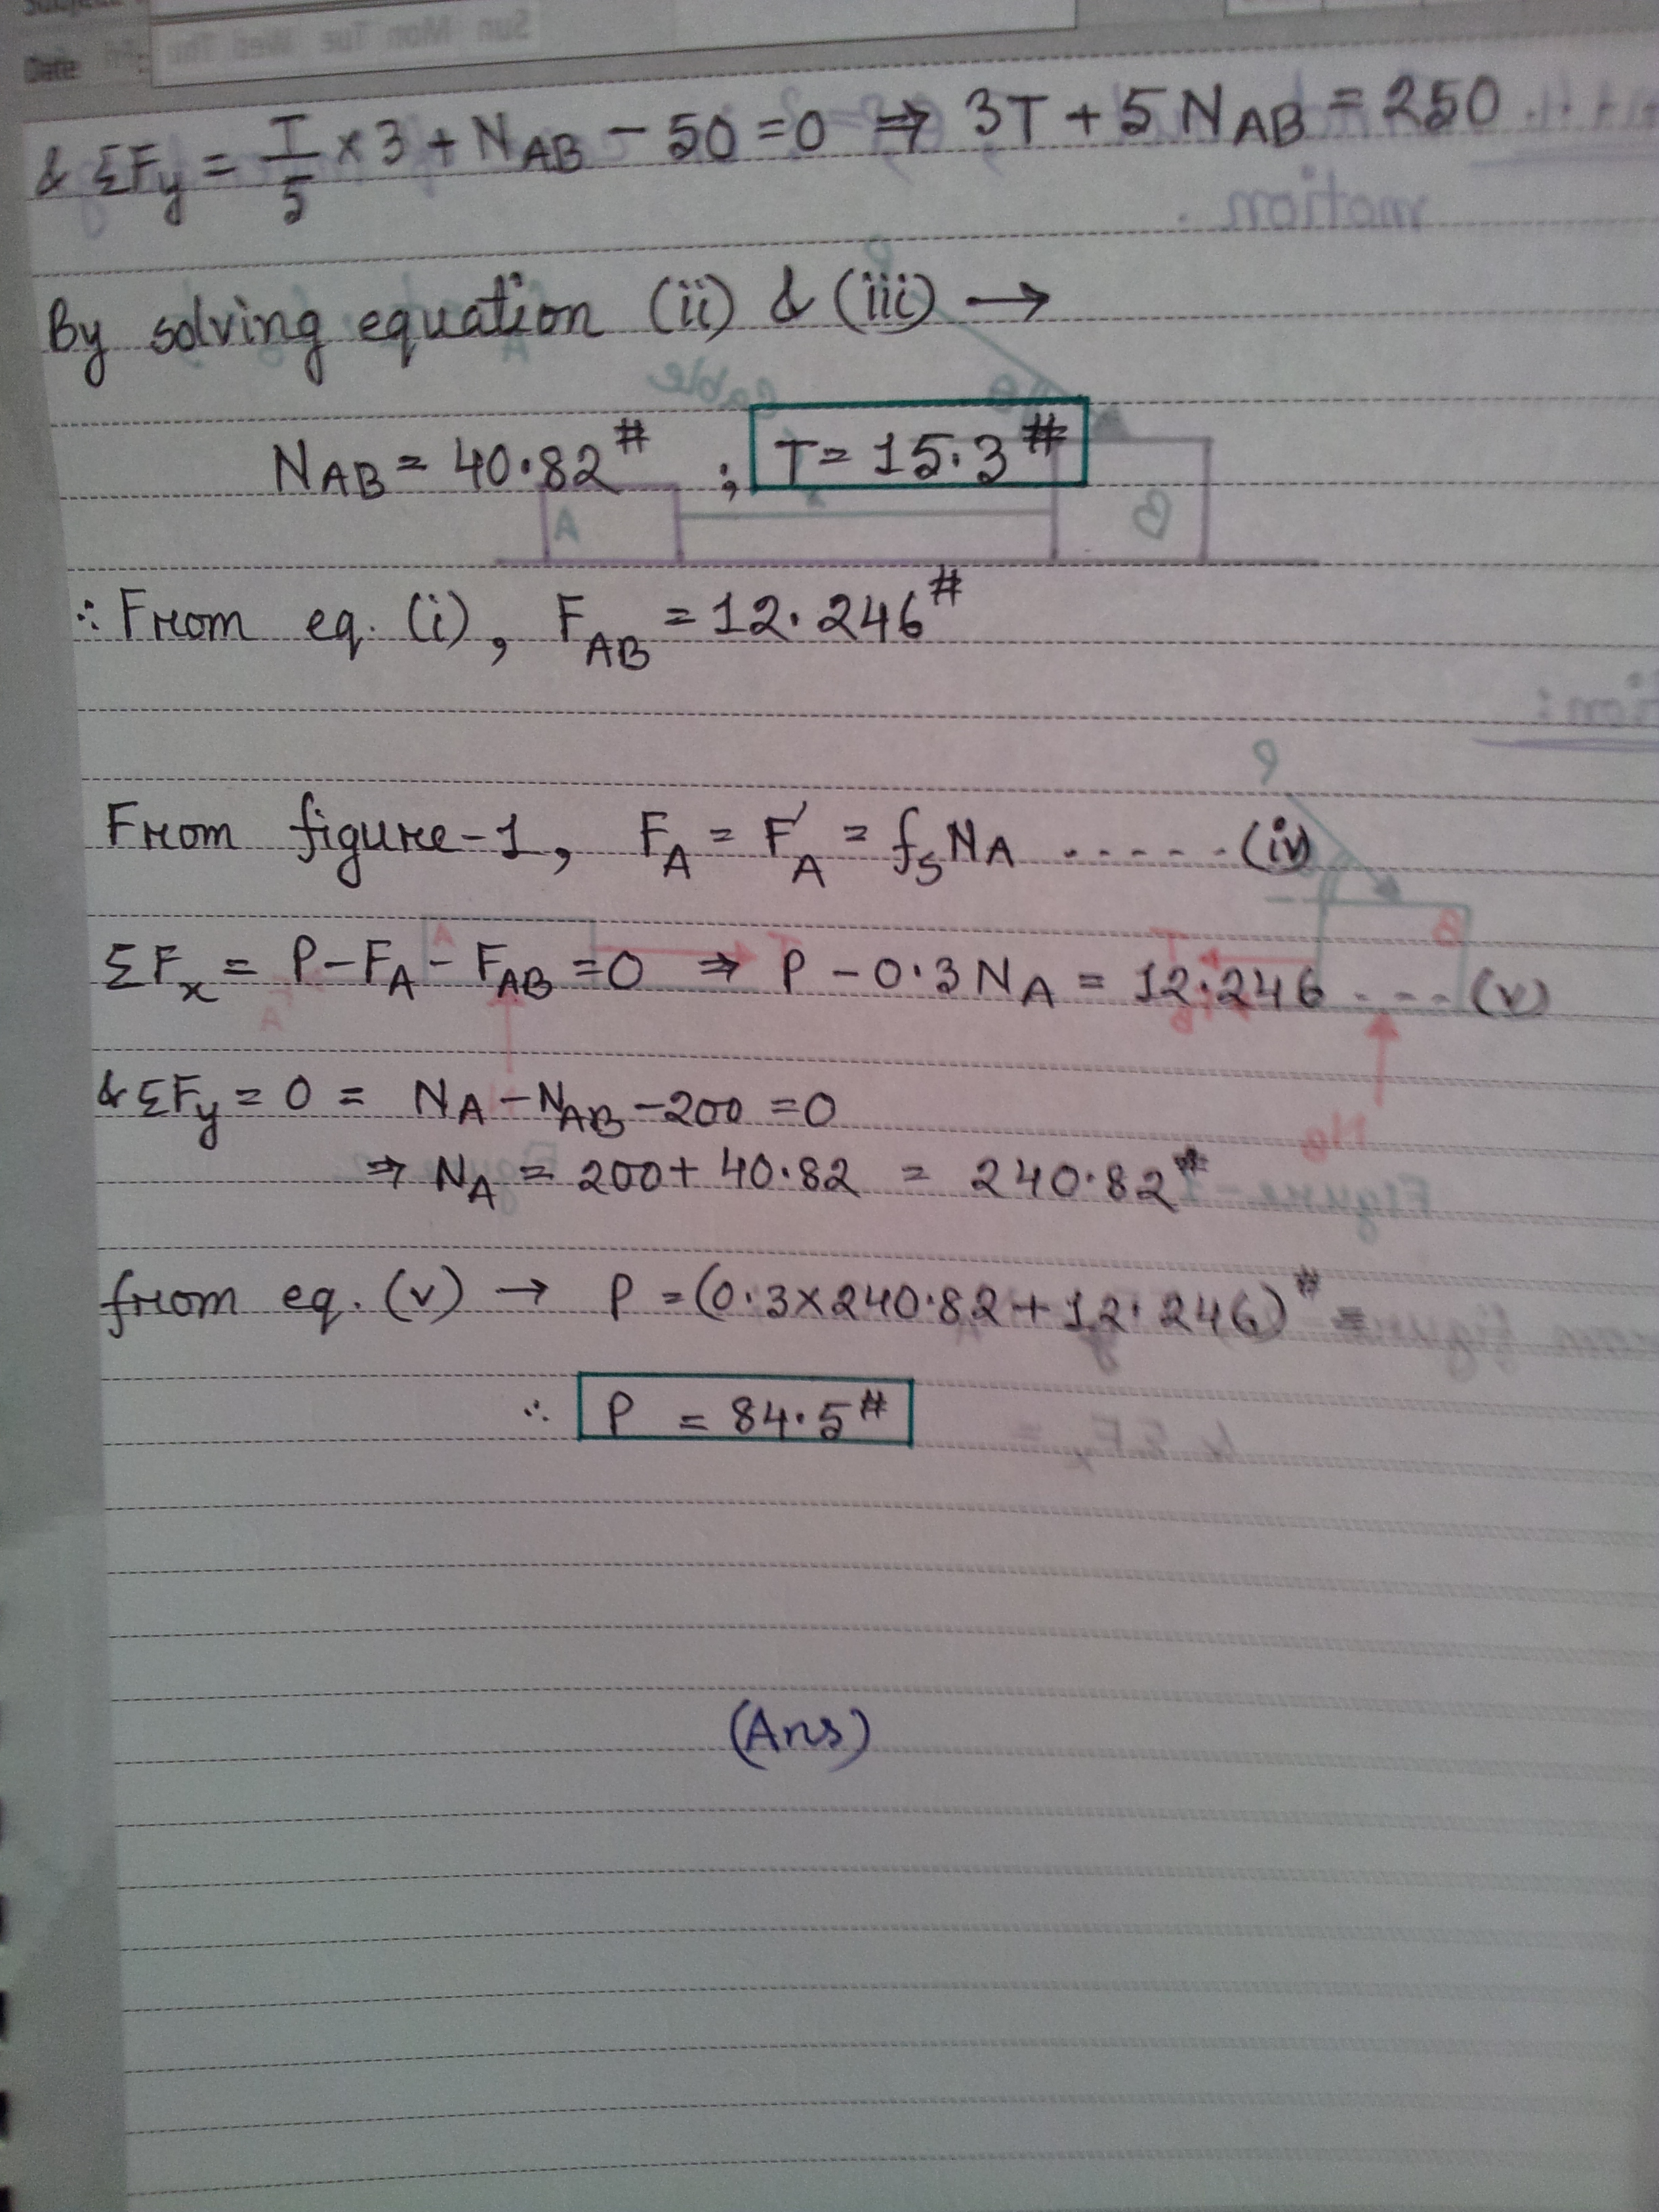 Date
Sun Mon Tue Wed Thu
& ΣFy = T/5 × 3 + N_AB − 50 = 0 ⇒ 3T + 5 N_AB = 250
By solving equation (ii) & (iii) →
N_AB = 40.82# ; T = 15.3#
∴ From eq. (i), F_AB = 12.246#
From figure-1, F_A = F'_A = f_s N_A ...... (iv)
ΣFx = P − F_A − F_AB = 0 ⇒ P − 0.3 N_A = 12.246 .... (v)
& ΣFy = 0 = N_A − N_AB − 200 = 0
⇒ N_A = 200 + 40.82 = 240.82#
from eq. (v) → P = (0.3×240.82 + 12.246)# =
∴ P = 84.5#
(Ans)